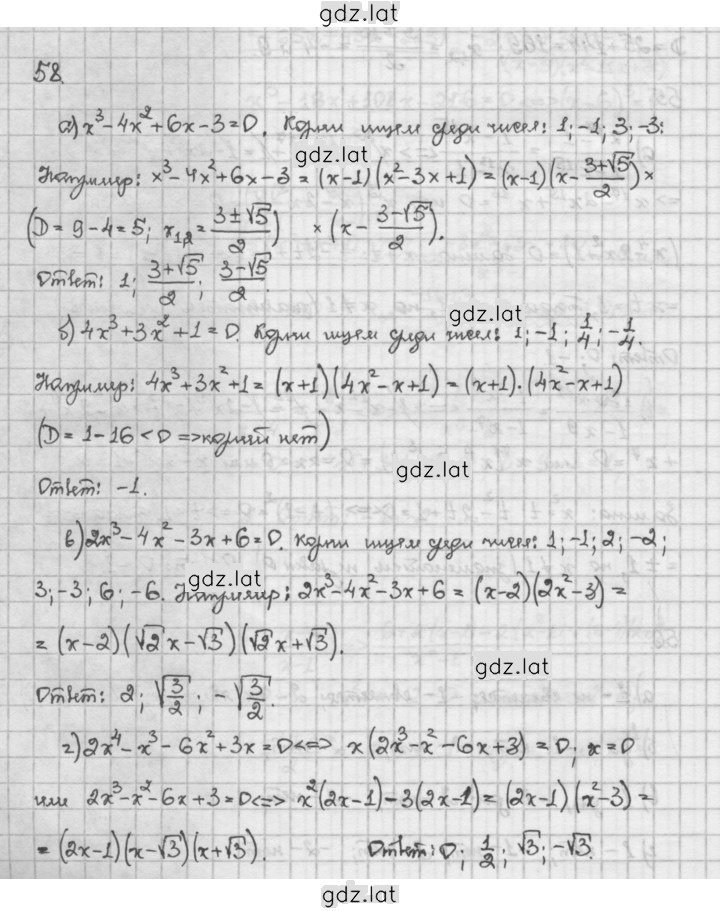 gdz.lat
58.
а) x³-4x²+6x-3=0. Корни ищем среди чисел: 1; -1; 3; -3:
gdz.lat
Например: x³-4x²+6x-3 = (x-1)(x²-3x+1) = (x-1)(x - (3+√5)/2) ×
(D=9-4=5; x₁,₂ = (3±√5)/2) × (x - (3-√5)/2).
Ответ: 1; (3+√5)/2; (3-√5)/2.
gdz.lat
б) 4x³+3x²+1=0. Корни ищем среди чисел: 1; -1; 1/4; -1/4.
Например: 4x³+3x²+1 = (x+1)(4x²-x+1) = (x+1)·(4x²-x+1)
(D=1-16<0 => корней нет)
gdz.lat
Ответ: -1.
в) 2x³-4x²-3x+6=0. Корни ищем среди чисел: 1; -1; 2; -2;
gdz.lat
3; -3; 6; -6. Например: 2x³-4x²-3x+6 = (x-2)(2x²-3) =
= (x-2)(√2x-√3)(√2x+√3).
gdz.lat
Ответ: 2; √(3/2); -√(3/2).
г) 2x⁴-x³-6x²+3x=0 <=> x(2x³-x²-6x+3)=0; x=0
или 2x³-x²-6x+3=0 <=> x²(2x-1)-3(2x-1) = (2x-1)(x²-3) =
= (2x-1)(x-√3)(x+√3). Ответ: 0; 1/2; √3; -√3.
gdz.lat